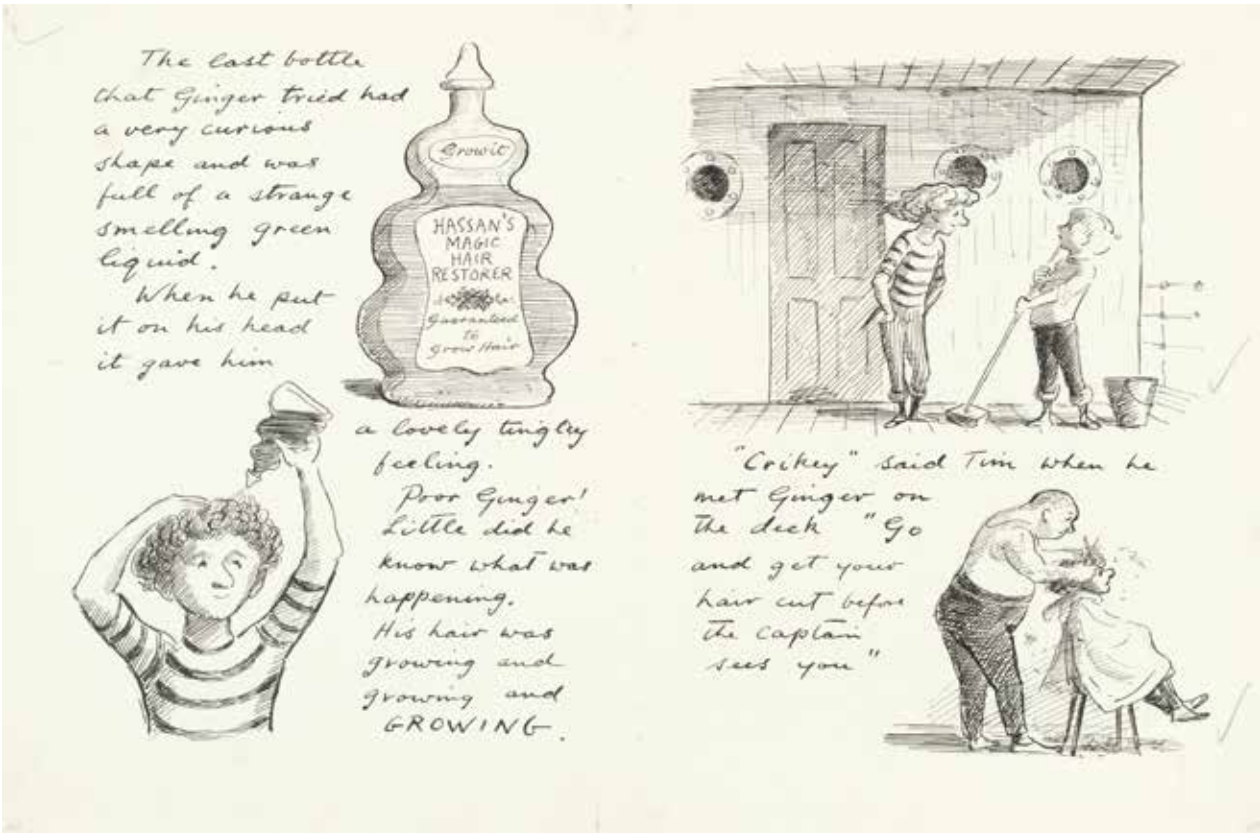 The last bottle
that Ginger tried had
a very curious
shape and was
full of a strange
smelling green
liquid.
When he put
it on his head
it gave him
Growit
HASSAN'S
MAGIC
HAIR
RESTORER
Guaranteed
to
grow Hair
a lovely tingley
feeling.
Poor Ginger!
Little did he
know what was
happening.
His hair was
growing and
growing and
GROWING.
"Crikey" said Tim when he
met Ginger on
the deck "Go
and get your
hair cut before
the Captain
sees you"